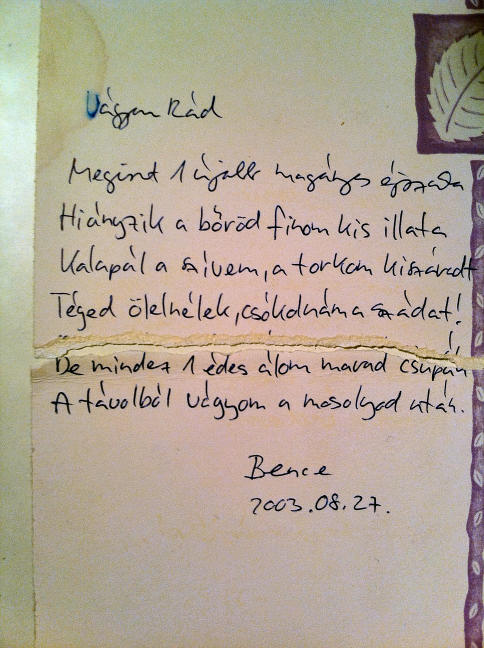 Vágyom Rád
Megint 1 újabb magányos éjszaka
Hiányzik a bőröd finom kis illata
Kalapál a szívem, a torkom kiszáradt
Téged ölelnélek, csókolnám a szádat!
De mindez 1 édes álom marad csupán,
A távolból vágyom a mosolyod után.
Bence
2003.08.27.